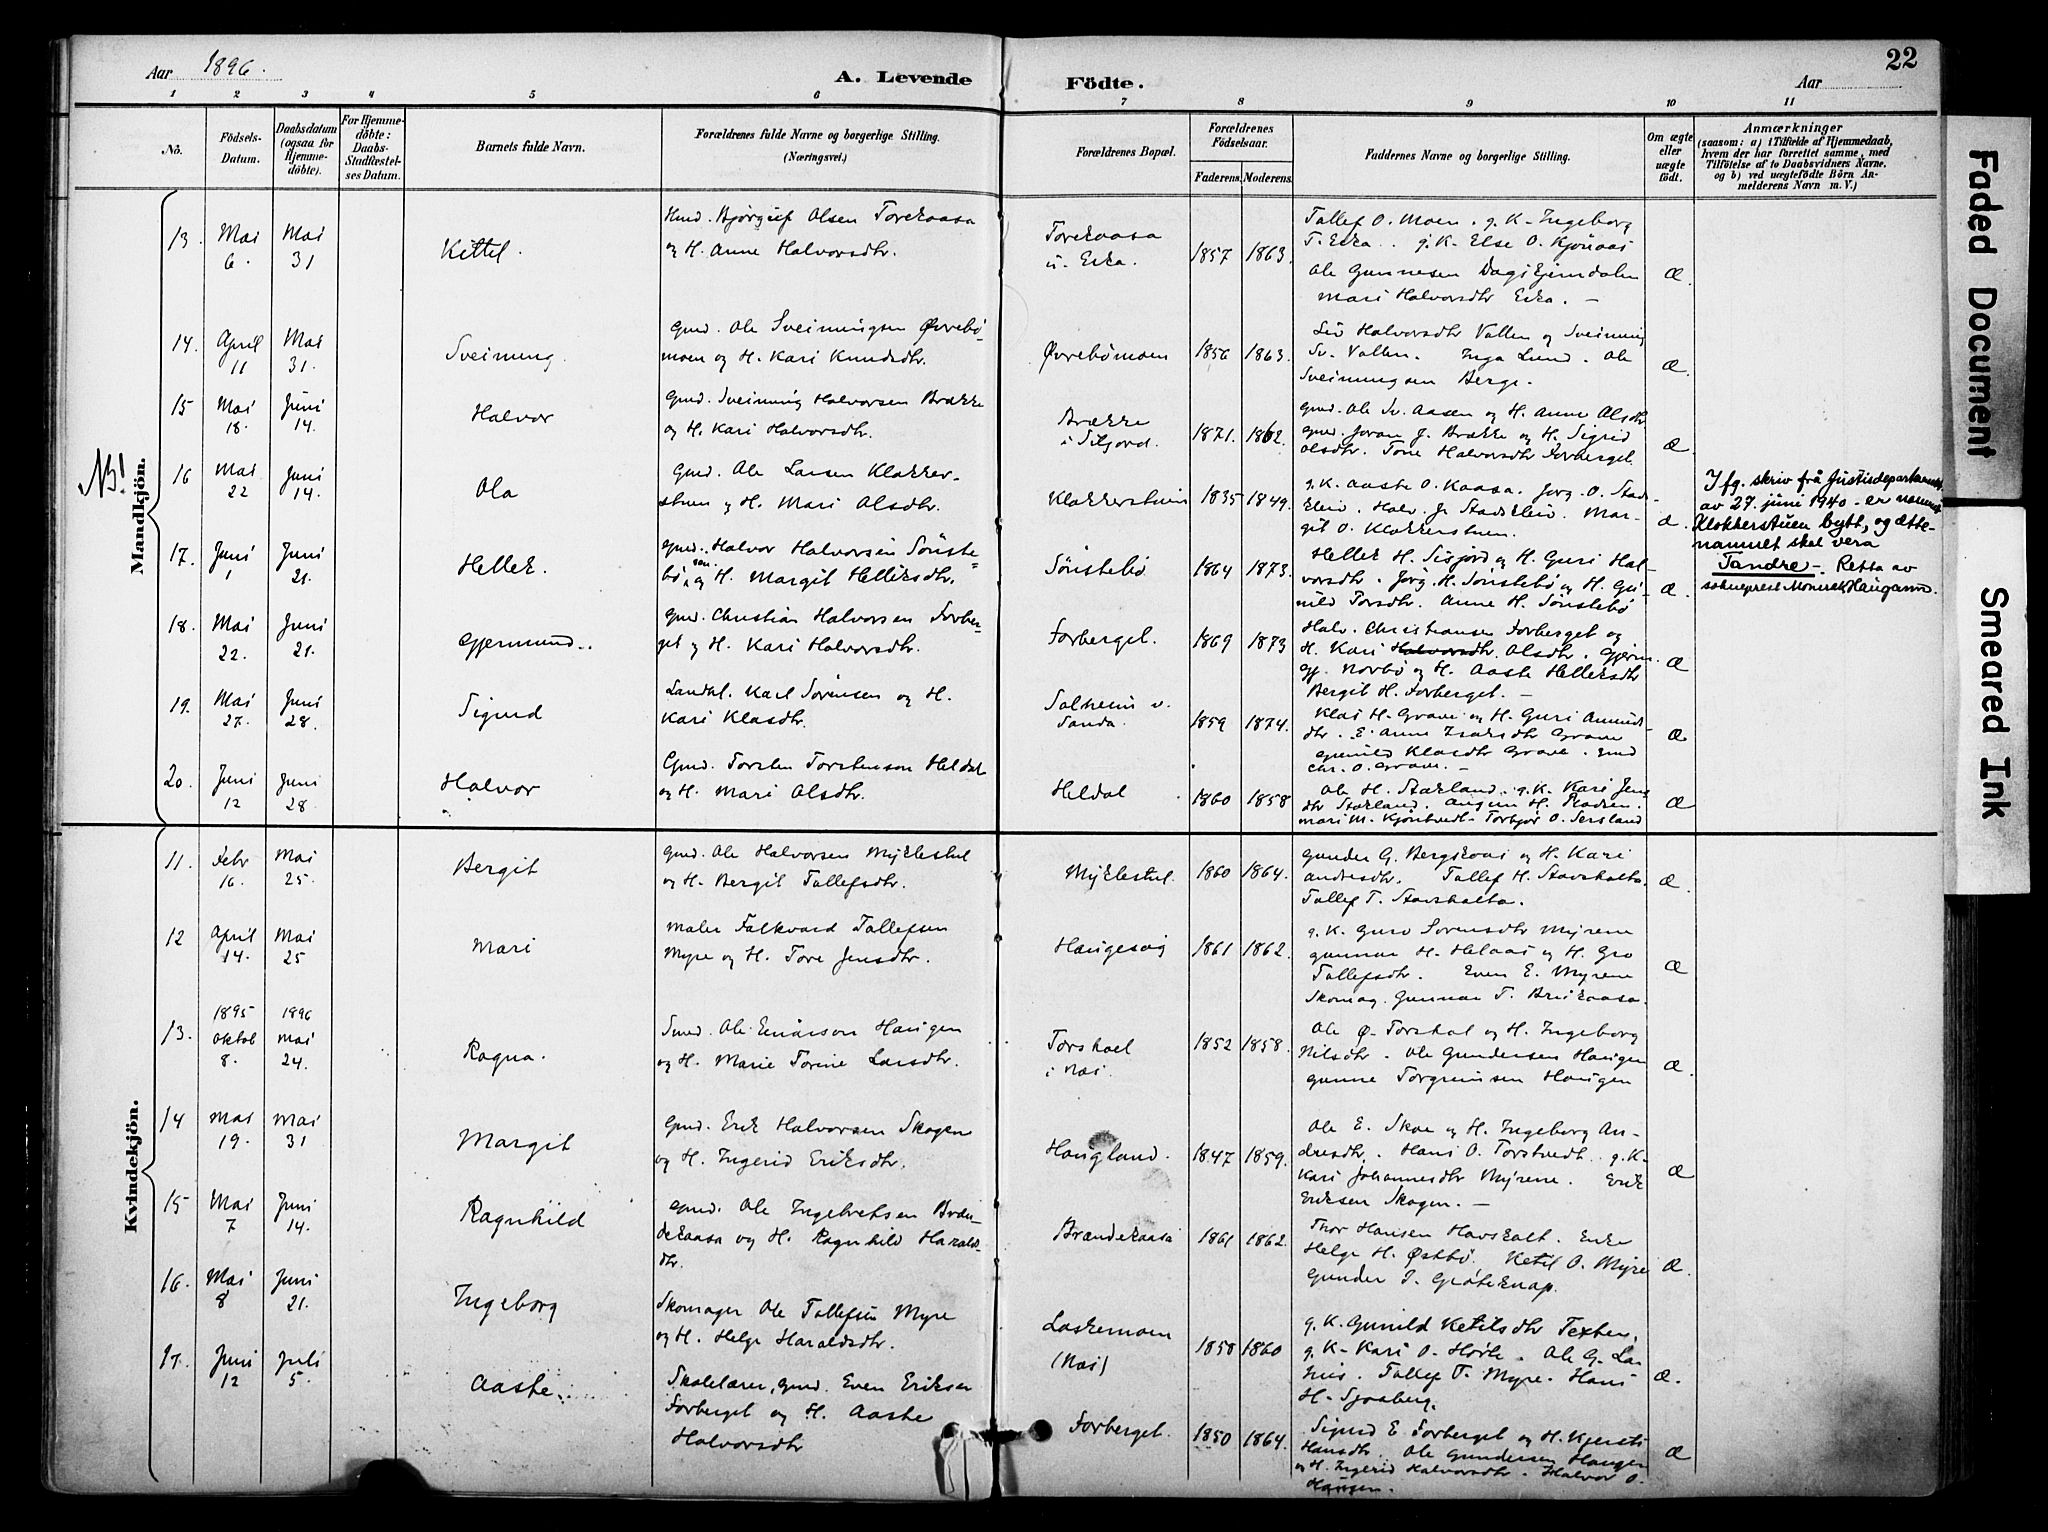 Aar 1896.
A. Levende Födte.
Aar
22
1 2 3 4 5 6 7 8 9 10 11
No.
Födsels-
Datum.
Daabsdatum
(ogsaa for
Hjemme-
döbte).
For Hjemme-
döbte:
Daabs-
Stadfæstel-
ses Datum.
Barnets fulde Navn.
Forældrenes fulde Navne og borgerlige Stilling.
(Næringsvei.)
Forældrenes Bopæl.
Forældrenes
Födselsaar.
Faderens. Moderens.
Faddernes Navne og borgerlige Stilling.
Om ægte
eller
uægte
födt.
Anmærkninger
(saasom: a) i Tilfælde af Hjemmedaab,
hvem der har forrettet samme, med
Tilföielse af to Daabsvidners Navne,
og b) ved uægtefödte Börn An-
melderens Navn m. V.)
Mandkjön.
NB!
13. Mai 6. Mai 31 Kittel.
Gmd. Bjørguf Olsen Torekaasa
og H. Anne Halvorsdtr.
Torekaasa
u. Eika.
1857 1863.
Tallef O. Moen. g. K. Ingeborg
T. Eika. g. K. Else O. Kjønaas
Ole Gunnesen Dagskjimdalen
Mari Halvorsdtr Eika. –
Æ.
14. April 11 Mai 31. Sveinung.
Gmd. Ole Sveinungsen Øvrebø-
moen og H. Kari Knudsdtr.
Øvrebømoen 1856 1863.
Liv Halvorsdtr Vallen og Sveinung
Sv. Vallen. Inga Lund. Ole
Sveinungsen Berge.
Æ.
15 Mai 18. Juni 14. Halvor
Gmd. Sveinung Halvorsen Brække
og H. Kari Halvorsdtr.
Brække
i Siljord.
1871. 1862.
Gmd. Ole Sv. Aasen og H. Anne Olsdtr
gmd. Joran J. Brække og H. Sigrid
Olsdtr. Tone Halvorsdtr Forberget.
Æ
16 Mai 22 Juni 14. Ola
Gmd. Ole Larsen Klokker-
stuen og H. Mari Olsdtr.
Klokkerstuen 1835 1849.
g. K. Aaste O. Kaasa. Jørg. O. Stads-
kleiv. Halv. J. Stadskleiv. Mar-
git O. Klokkerstuen.
Æ.
Ifg. skriv frå Justisdepartementet
av 27. juni 1940 er namnet
Klokkerstuen bytt, og ætte-
namnet skal vera
Tandre –. Retta av
sokneprest Haugann.
17. Juni 1 Juni 21. Hellek.
Gmd. Halvor Halvorsen Sønste-
bø og H. Margit Helleksdtr.
Sønstebø 1864 1873.
Hellek H. Sisjord og H. Guri Hal-
vorsdtr. Jørg. H. Sønstebø og H. Gu-
nild Torsdtr. Anne H. Sønstebø
Æ.
18. Mai 22. Juni 21. Gjermund.
Gmd. Christian Halvorsen Forber-
get og H. Kari Halvorsdtr.
Forberget. 1869 1873
Halv. Christiansen Forberget og
H. Kari Halvorsdtr. Olsdtr. Gjerm.
Gj. Norbø og H. Aaste Helleksdtr
Bergit H. Forberget. –
Æ
19. Mai 27. Juni 28. Sigurd
Landh. Karl Sørensen og H.
Kari Klasdtr.
Solheim v.
Sanda.
1859 1874.
Klas H. Grave og H. Guri Amunds-
dtr. E. Anne Isaksdtr Grave
Gunild Klasdtr Grave. Gmd
Chr. O. Grave. –
Æ
20. Juni 12 Juni 28 Halvor
Gmd. Torsten Torstenson Heldal
og H. Mari Olsdtr.
Heldal 1860 1858
Ole H. Stækland. g. K. Kari Jens-
dtr Stækland. H.
Mari M. Torbjør O. Sersland
Æ
Kvindekjön.
11. Febr 16. Mai 25. Bergit
Gmd. Ole Halvorsen Myklestul
og H. Bergit Tallefsdtr.
Myklestul. 1860 1864.
Gunder G. Bergskaas og H. Kari
Andresdtr. Tallef H. Stavsholta.
Tallef T. Stavsholta.
Æ.
12 April 14. Mai 25 Mari
Maler Falkvard Tallefsen
Myre og H. Tore Jensdtr.
Haugesvig 1861 1862.
g. K. Guro Sorensdtr Myrene
Gunnar H. Helaas og H. Gro
Tallefsdtr. Even E. Myrene
Skomag. Gunnar T. Brukaasa.
Æ
13. 1895 Oktob 8. 1896 Mai 24. Ragna.
Smed. Ole Einarson Haugen
og H. Marie Torine Larsdtr.
Torshoel
i Næs.
1852 1858.
Ole Ø. Torshol og H. Ingeborg
Nilsdtr. Ole Gundersen Haugen
Gunne Torgrimsen Haugen
Æ.
14 Mai 19. Mai 31 Margit
Gmd. Erik Halvorsen Skogen
og H. Ingerid Eriksdtr.
Haugland. 1847 1859.
Ole E. Skoe og H. Ingeborg An-
dresdtr. Hans O. Torstvedt. g. K.
Kari Johannesdtr Myrene. Erik
Eriksen Skogen. –
Æ
15 Mai 7 Juni 14. Ragnhild
Gmd. Ole Ingebretsen Bræn-
dekaasa og H. Ragnhild Haralds-
dtr.
Brændekaasa 1861 1862.
Thor Hansen Havskalt. Enke
Helge H. Østbø. Ketil O. Myre
Gunder J. Grøteknap.
Æ.
16. Mai 8 Juni 21. Ingeborg
Skomager Ole Tallefsen Myre
og H. Helge Haraldsdtr.
Laskemoen
(Næs)
1858 1860
g. K. Gunild Ketilsdtr Texten.
g. K. Kari O. Høibø. Ole G. La-
Tallef T. Myre. Hans
H. Sjoaberg.
Æ.
17. Juni 12 Juli 5. Aaste.
Skolelærer, Gmd. Even Eriksen
Forberget og H. Aaste
Halvorsdtr
Forberget. 1850 1864.
Sigurd E Forberget og H. Kjersti
Hansdtr. Ole Gundersen Haugen
og H. Ingerid Halvorsdtr. Halvor O.
Haugen.
Æ
Faded Document
Smeared Ink